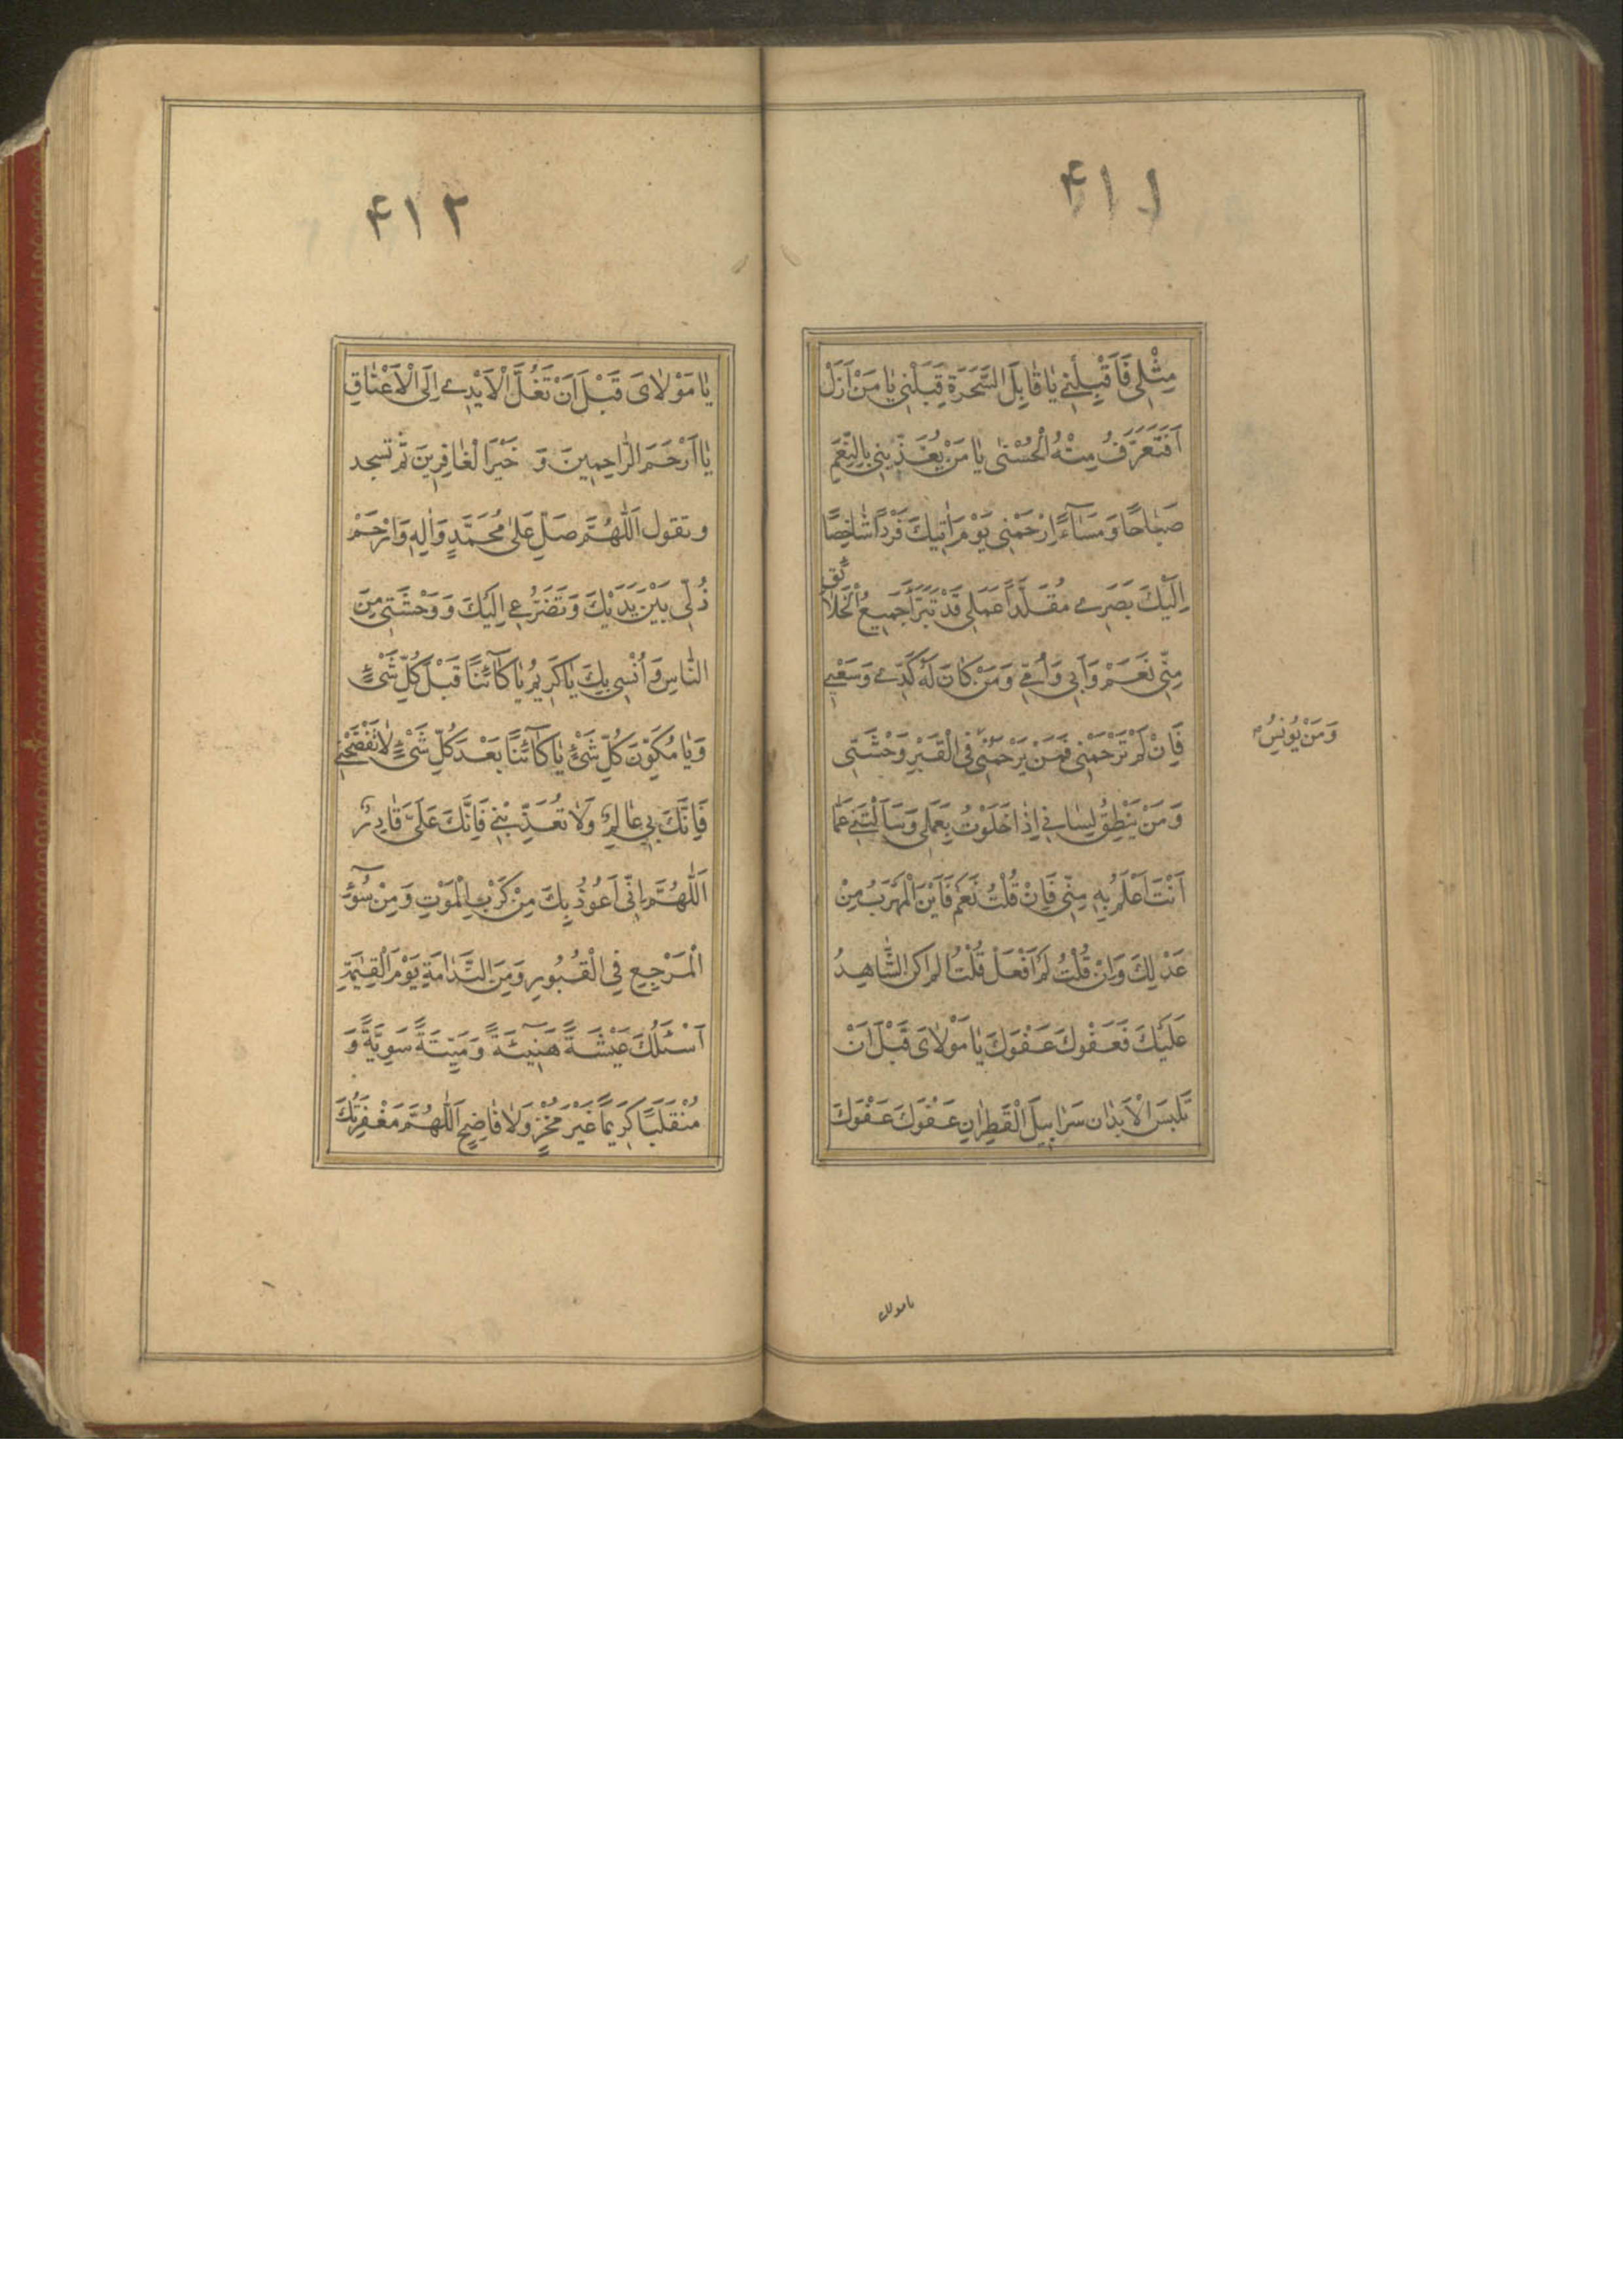 ۴۱۱
مِثْلِي فَاَقْبِلْنِي يٰا قٰابِلَ السَّحَرَةِ قِبَلْنِي يٰا مَنْ اَزَلْ
اَفَتَعَرَّفُ مِنْهُ الْحُسْنٰى يٰا مَنْ يُغَذِّيْنِي بِالنِّعَمِ
صَبٰاحًا وَ مَسٰآءً اِرْحَمْنِي يَوْمَ اٰتِيكَ فَرْدًا شٰاخِصًا
اِلَيْكَ بَصَرِي مُقَلَّدًا عَمَلِي قَدْ تَبَرَّأَ جَمِيعُ الْخَلٰائق
مِنِّي نَعَمْ وَ اَبِي وَ اُمِّي وَ مَنْ كٰانَ لَهُ كَدِّي وَ سَعْيِي
فَاِنْ لَمْ تَرْحَمْنِي فَمَنْ يَرْحَمُنِي فِي الْقَبْرِ وَحْشَتِي
وَمَنْ يُونِسُ
وَ مَنْ يَنْطِقُ لِسٰانِي اِذٰا خَلَوْتُ بِعَمَلِي وَ سَاَلْتَنِي عَمّٰا
اَنْتَ اَعْلَمُ بِهِ مِنِّي فَاِنْ قُلْتُ نَعَمْ فَاَيْنَ الْمَهْرَبُ مِنْ
عَدْلِكَ وَ اِنْ قُلْتُ لَمْ اَفْعَلْ قُلْتَ الم اكن الشّٰاهِدُ
عَلَيْكَ فَعَفْوكَ عَفْوَكَ يٰا مَوْلٰاىَ قَبْلَ اَنْ
تَلْبَسَ الْاَبْدٰان سَرٰابِيلَ الْقَطِرٰانِ عَفْوَكَ عَفْوَكَ
۴۱۲
يٰا مَوْلٰاىَ قَبْلَ اَنْ تَغُلَّ الْاَيْدِي اِلَى الْاَعْنٰاقِ
يٰا اَرْحَمَ الرّٰاحِمِينَ وَ خَيْرَ الْغٰافِرِينَ ثم تسجد
و تقول اَللّٰهُمَّ صَلِّ عَلٰى مُحَمَّدٍ وَ اٰلِهِ وَ ارْحَمْ
ذُلِّي بَيْنَ يَدَيْكَ وَ تَضَرُّعِي اِلَيْكَ وَ وَحْشَتِي مِنَ
النّٰاسِ وَ اُنْسِي بِكَ يٰا كَرِيمُ يٰا كٰآئِنًا قَبْلَ كُلِّ شَىْءٍ
وَ يٰا مُكَوِّنَ كُلِّ شَىْءٍ يٰا كٰآئِنًا بَعْدَ كُلِّ شَىْءٍ لٰا تَفْضَحْنِي
فَاِنَّكَ بِي عٰالِمٌ وَ لٰا تُعَذِّبْنِي فَاِنَّكَ عَلَىَّ قٰادِرٌ
اَللّٰهُمَّ اِنِّي اَعُوذُ بِكَ مِنْ كَرْبِ الْمَوْتِ وَ مِنْ سُوٓءِ
الْمَرْجِعِ فِي الْقُبُورِ وَ مِنَ النَّدٰامَةِ يَوْمَ الْقِيٰمَةِ
اَسْئَلُكَ عَيْشَةً هَنِيٓئَةً وَ مَيْتَةً سَوِيَّةً وَ
مُنْقَلَبًا كَرِيمًا غَيْرَ مُخْزٍ وَ لٰا فٰاضِحٍ اَللّٰهُمَّ مَغْفِرَتُكَ